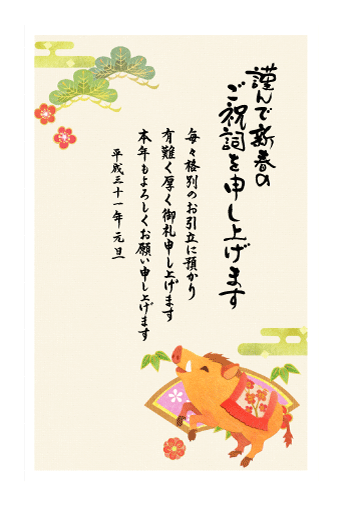 謹んで新春の
ご祝詞を申し上げます
毎々格別のお引立に預かり
有難く厚く御礼申し上げます
本年もよろしくお願い申し上げます
平成三十一年元旦